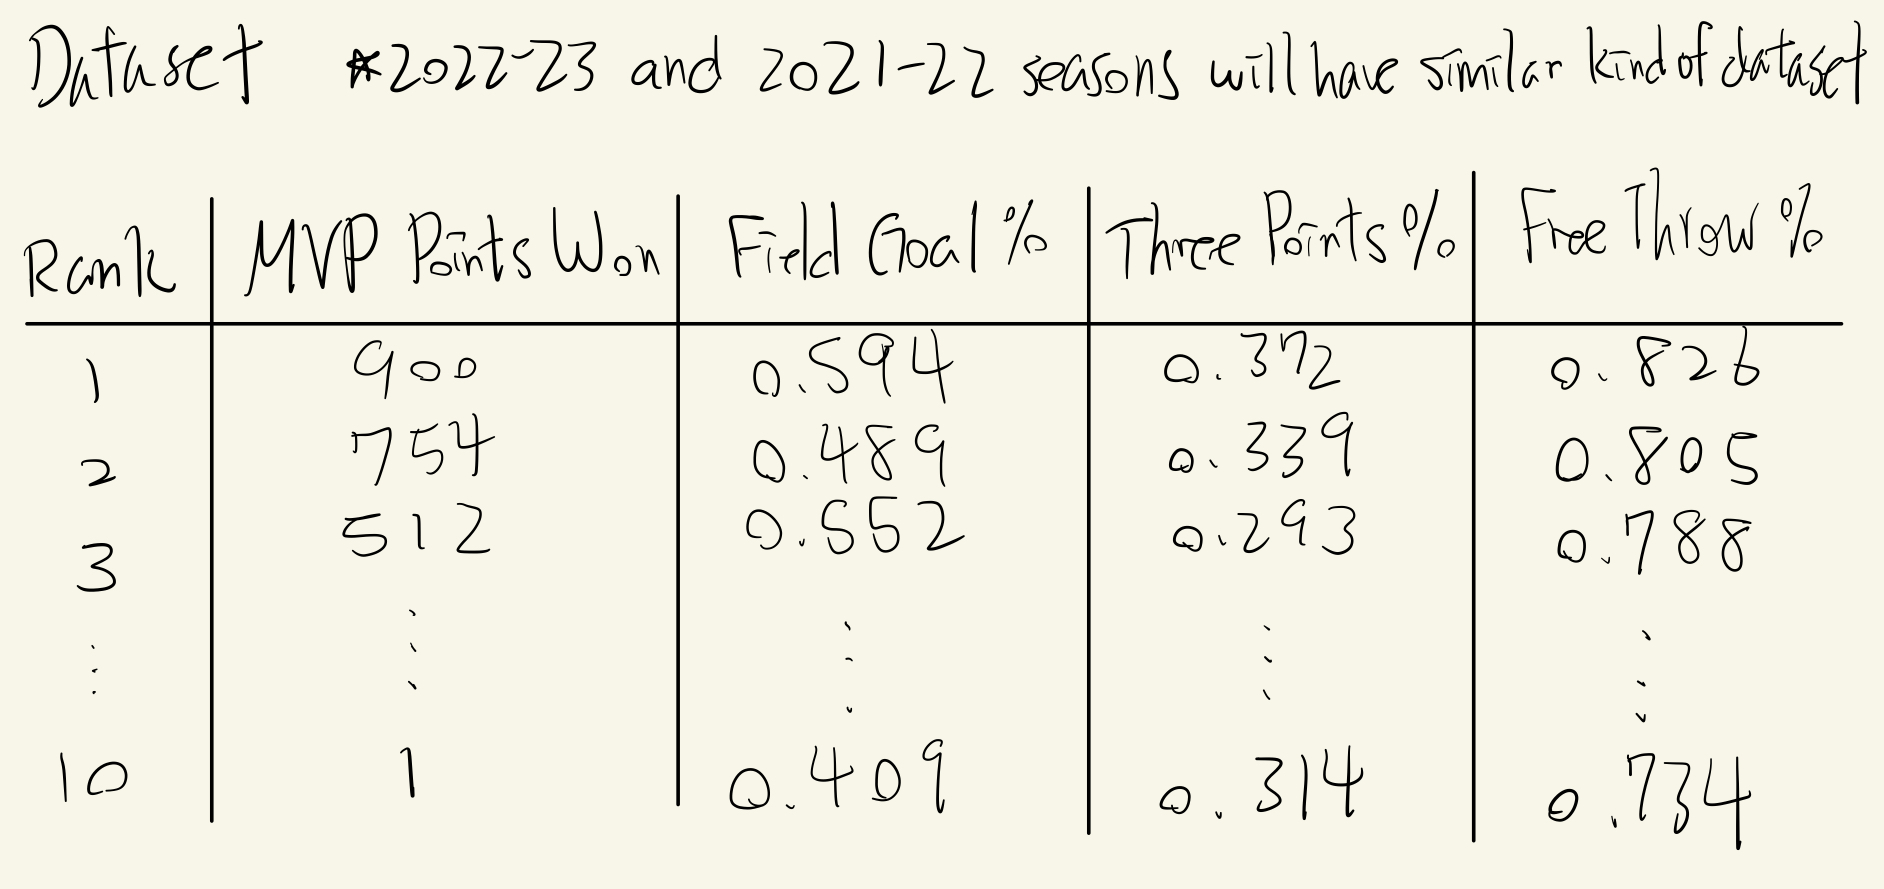 Dataset *2022-23 and 2021-22 seasons will have similar kind of dataset
Rank MVP Points Won Field Goal % Three Points % Free Throw %
1 900 0.594 0.372 0.826
2 754 0.489 0.339 0.805
3 512 0.552 0.293 0.788
⋮ ⋮ ⋮ ⋮ ⋮
10 1 0.409 0.314 0.734